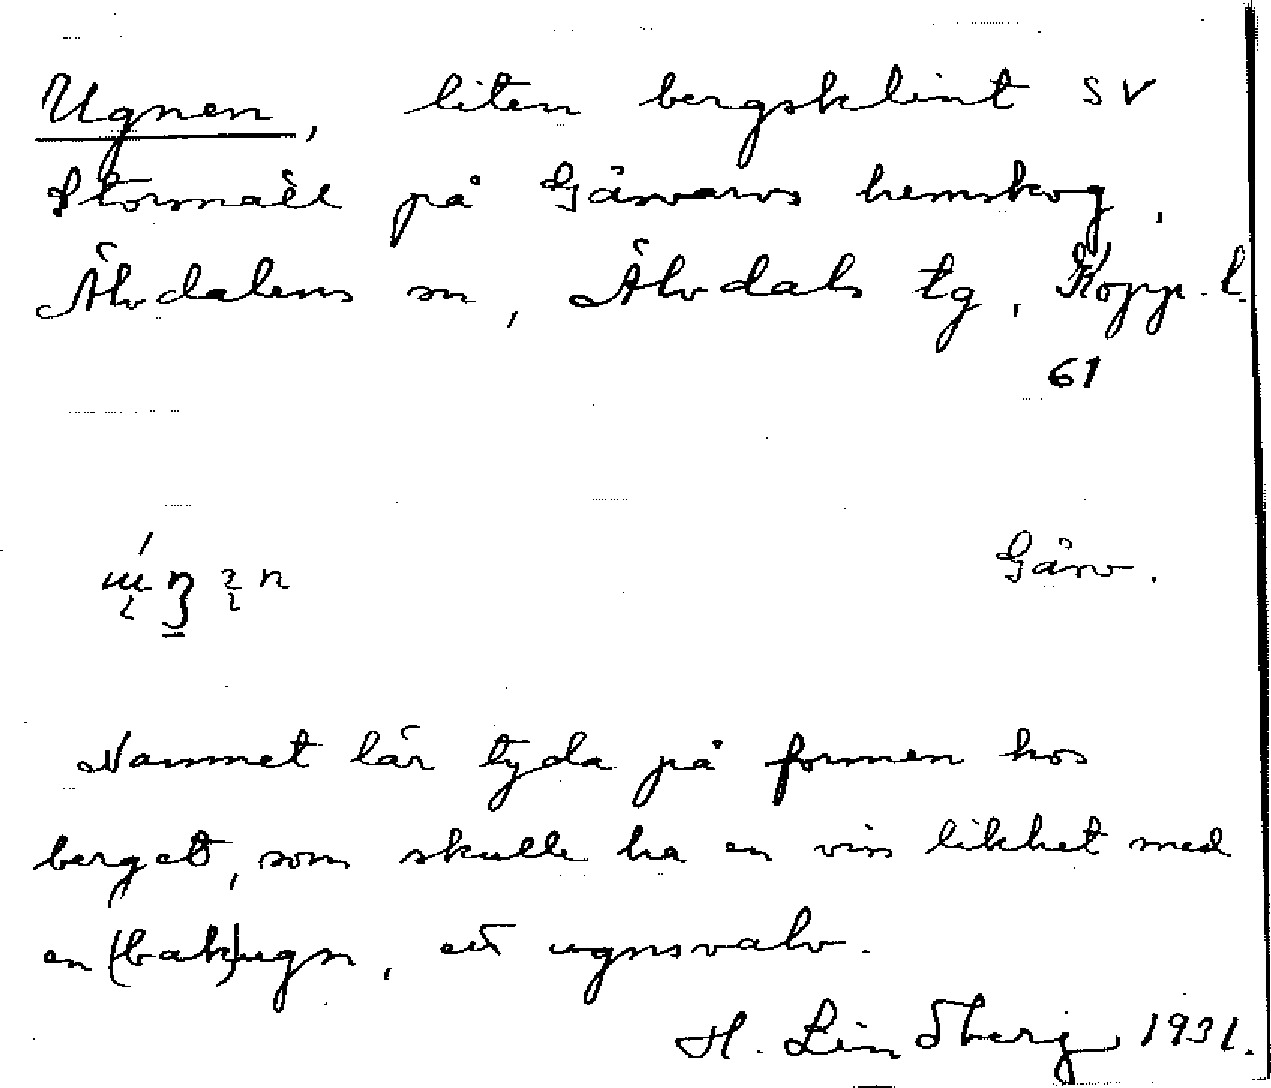 Ugnen, liten bergsklint SV
på Gåsvarvs hemskog,
Älvdalens sn, Älvdals tg, Kopp. l.
61
Namnet lär tyda på formen hos
berget, som skulle ha en viss likhet med
en (bak)ugn, ett ugnsvalv.
H. Lindberg 1931.